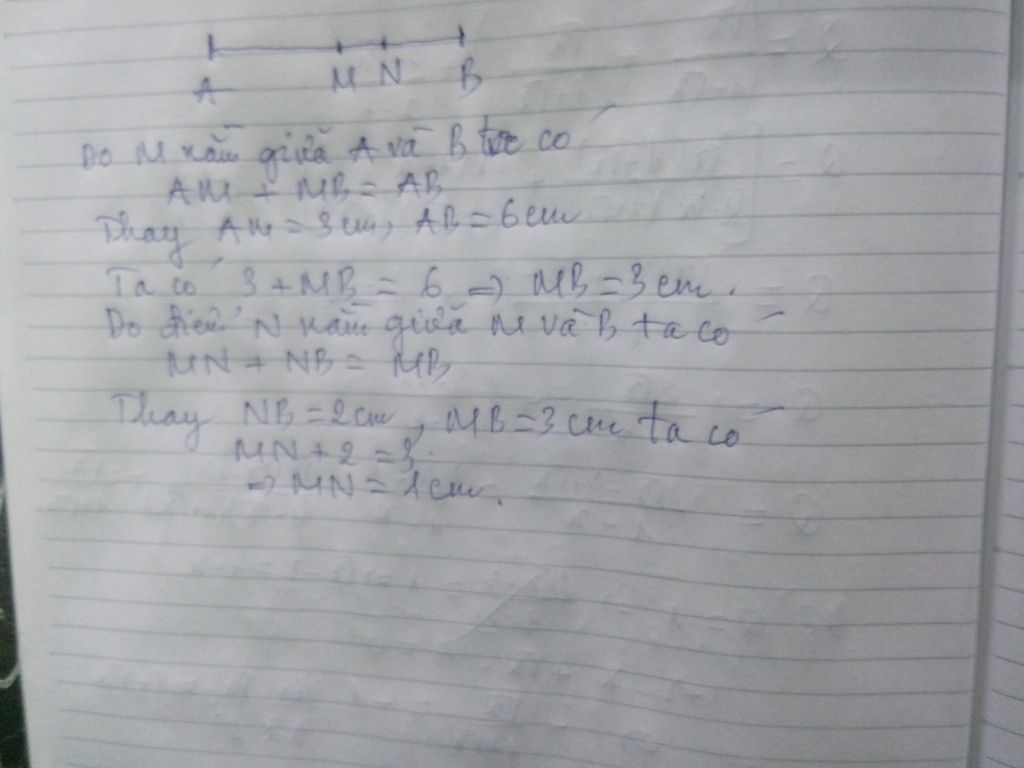 A M N B
Do M nằm giữa A và B ta có
AM + MB = AB
Thay AM = 3cm, AB = 6cm
Ta có 3 + MB = 6 => MB = 3cm.
Do điểm N nằm giữa M và B ta có
MN + NB = MB
Thay NB = 2cm, MB = 3cm ta có
MN + 2 = 3.
=> MN = 1cm.